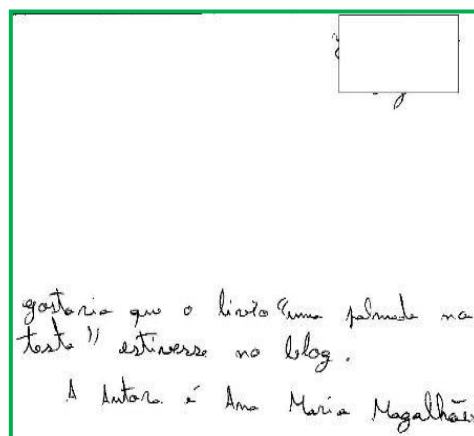 gostaria que o livro "uma palmada na
testa" estivesse no blog.
A Autora é Ana Maria Magalhães